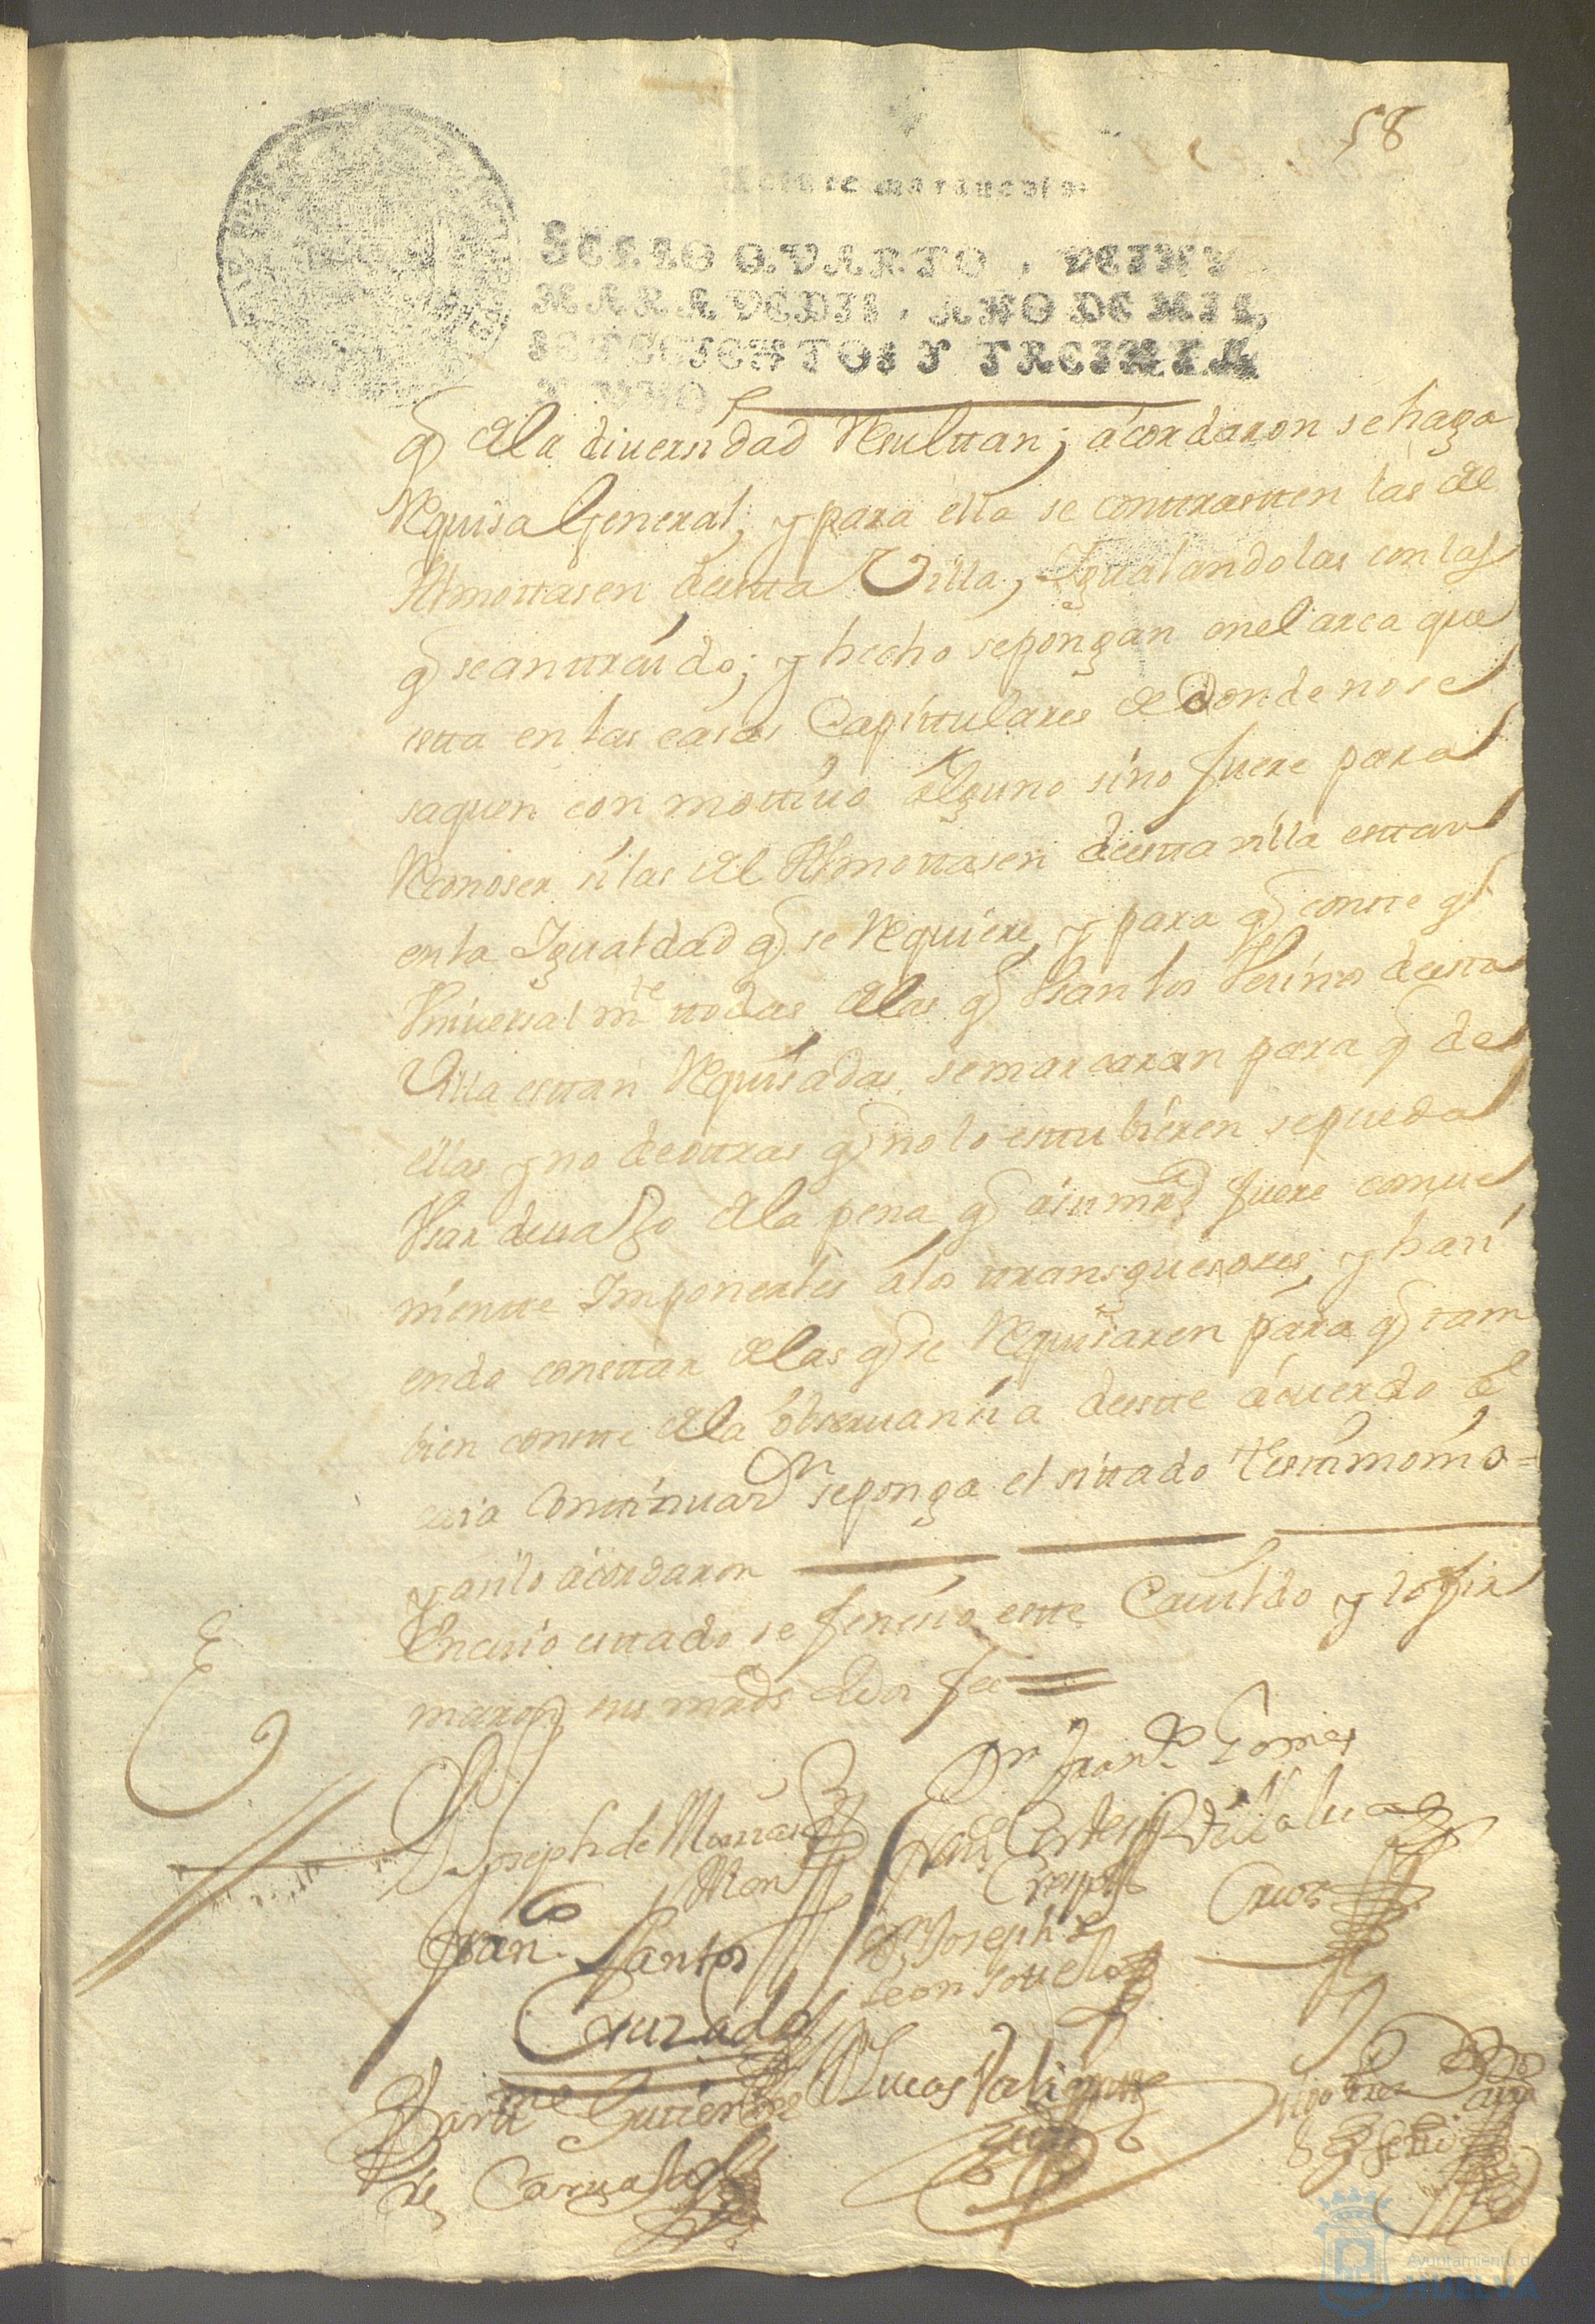 58
Veinte maravedis.
SELLO QVARTO, VEINTE
MARAVEDIS, AÑO DE MIL
SETECIENTOS Y TREINTA
Y UNO
q̃ de la diuersidad Resulttan; acordaron se haga
Requisa General; y para ella se conttrastten las del
Almottasen desta Villa, Igualandolas con las
q̃ se an ttraido; y hecho se pongan en el arca que
estta en las casas Capittulares de donde no se
saquen con mottiuo alguno sino fuere para
Reconoser si las del Almottasen destta villa esttan
en la Igualdad q̃ se Requiere, y para q̃ constte q̃
Vniuersalmte ttodas de las q̃ Vsan los Vesinos desta
Villa esttan Requisadas, se marcaran para q̃ de
ellas y no de ottras q̃ no lo esttubieren se pueda
Vsar deuajo de la pena q̃ a su mrd fuere conue
nientte Imponerles a los ttransgresores, y hasi
endo consttar de las q̃ se Requisaren para q̃ tam
bien constte de la obseruansia destte acuerdo
Continuasn se ponga el sittado testtimonio =
y asi lo acordaron
En cuio esttado se fenesio estte Cauildo y lo fir
maron sus mrds de Dor fee
Dn Franco Gomes
Joseph de
Cortes Villalua
Crespo
Cruz
Franco Santos
Dn Joseph de
Leon Sottelo
Cruzado
Bartme Gutierrez
Lucas
de Caruajal
Ayuntamiento de
HUELVA